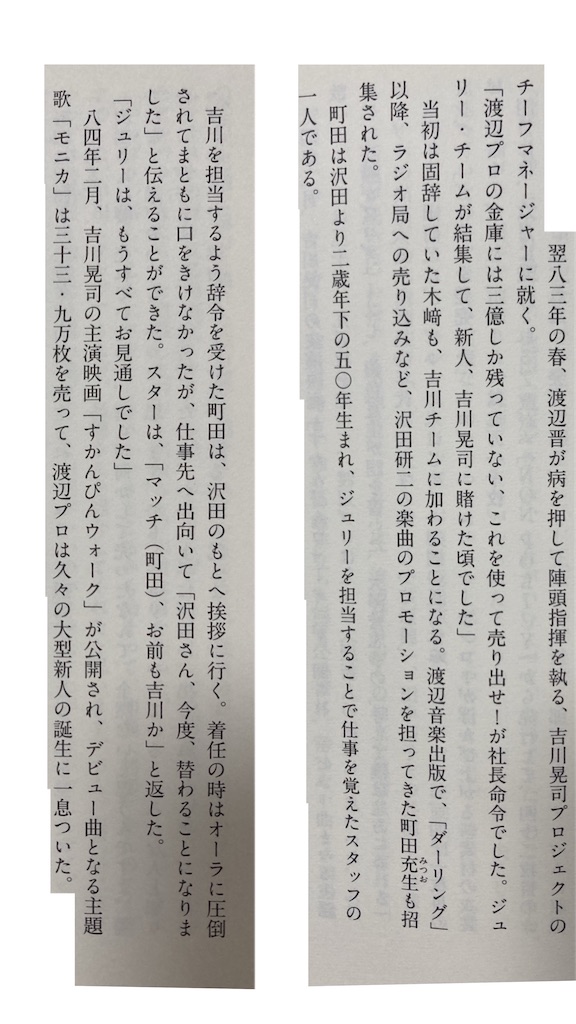 翌八三年の春、渡辺晋が病を押して陣頭指揮を執る、吉川晃司プロジェクトの
チーフマネージャーに就く。
「渡辺プロの金庫には三億しか残っていない、これを使って売り出せ!が社長命令でした。ジュ
リー・チームが結集して、新人、吉川晃司に賭けた頃でした」
当初は固辞していた木﨑も、吉川チームに加わることになる。渡辺音楽出版で、「ダーリング」
以降、ラジオ局への売り込みなど、沢田研二の楽曲のプロモーションを担ってきた町田充生も招
みつお
集された。
町田は沢田より二歳年下の五〇年生まれ、ジュリーを担当することで仕事を覚えたスタッフの
一人である。
吉川を担当するよう辞令を受けた町田は、沢田のもとへ挨拶に行く。着任の時はオーラに圧倒
されてまともに口をきけなかったが、仕事先へ出向いて「沢田さん、今度、替わることになりま
した」と伝えることができた。スターは、「マッチ(町田)、お前も吉川か」と返した。
「ジュリーは、もうすべてお見通しでした」
八四年二月、吉川晃司の主演映画「すかんぴんウォーク」が公開され、デビュー曲となる主題
歌「モニカ」は三十三・九万枚を売って、渡辺プロは久々の大型新人の誕生に一息ついた。